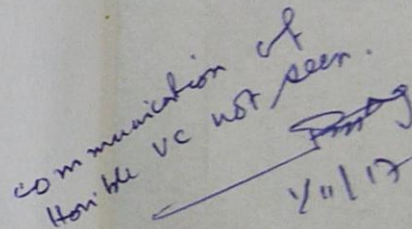 communication of
Hon'ble VC not seen.
1/11/17